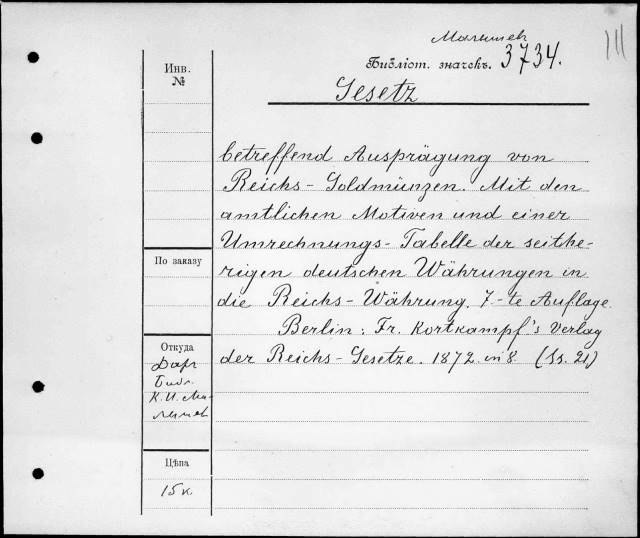 Малышев
Библіот. значекъ. 3734.
Gesetz
betreffend Ausprägung von
Reichs-Goldmünzen. Mit den
amtlichen Motiven und einer
Umrechnungs-Tabelle der seithe-
rigen deutschen Währungen in
die Reichs-Währung. 7-te Auflage.
Berlin: Fr. Kortkampf's Verlag
der Reichs-Gesetze. 1872. in 8. (Ss. 21)
Инв.
№
По заказу
Откуда
Дар
Библ.
К. И. Ма-
лышев
Цѣна
15 к